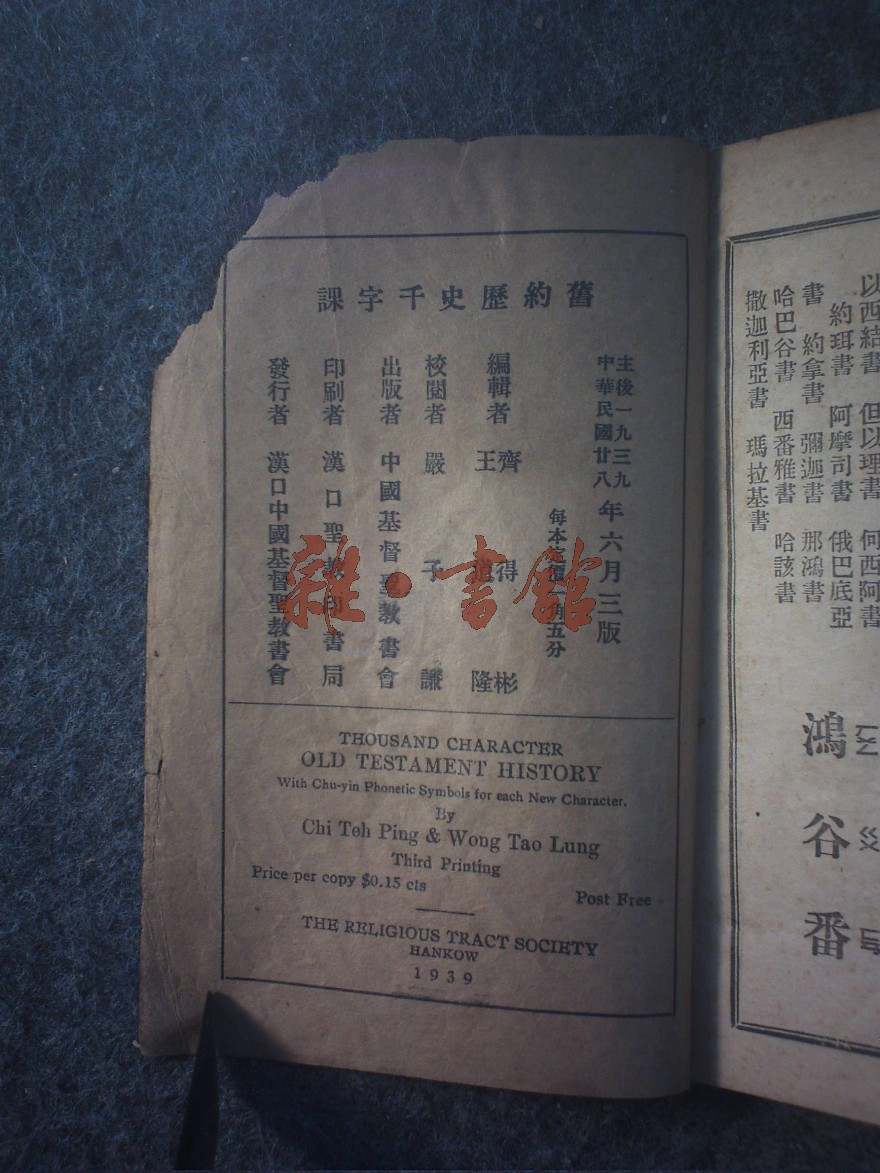 舊約歷史千字課
主後一九三九
中華民國廿八
年六月三版
每本定價 角五分
編輯者 齊得彬
王道隆
校閱者 嚴子謙
出版者 中國基督聖教書會
印刷者 漢口聖教印書局
發行者 漢口中國基督聖教書會
雜·書館
THOUSAND CHARACTER
OLD TESTAMENT HISTORY
With Chu-yin Phonetic Symbols for each New Character.
By
Chi Teh Ping & Wong Tao Lung
Third Printing
Price per copy $0.15 cts
Post Free
THE RELIGIOUS TRACT SOCIETY
HANKOW
1939
以西結書 但以理書 何西阿書
約珥書 阿摩司書 俄巴底亞
書 約拿書 彌迦書 那鴻書
哈巴谷書 西番雅書 哈該書
撒迦利亞書 瑪拉基書
鴻
谷 ㄍㄨ
番